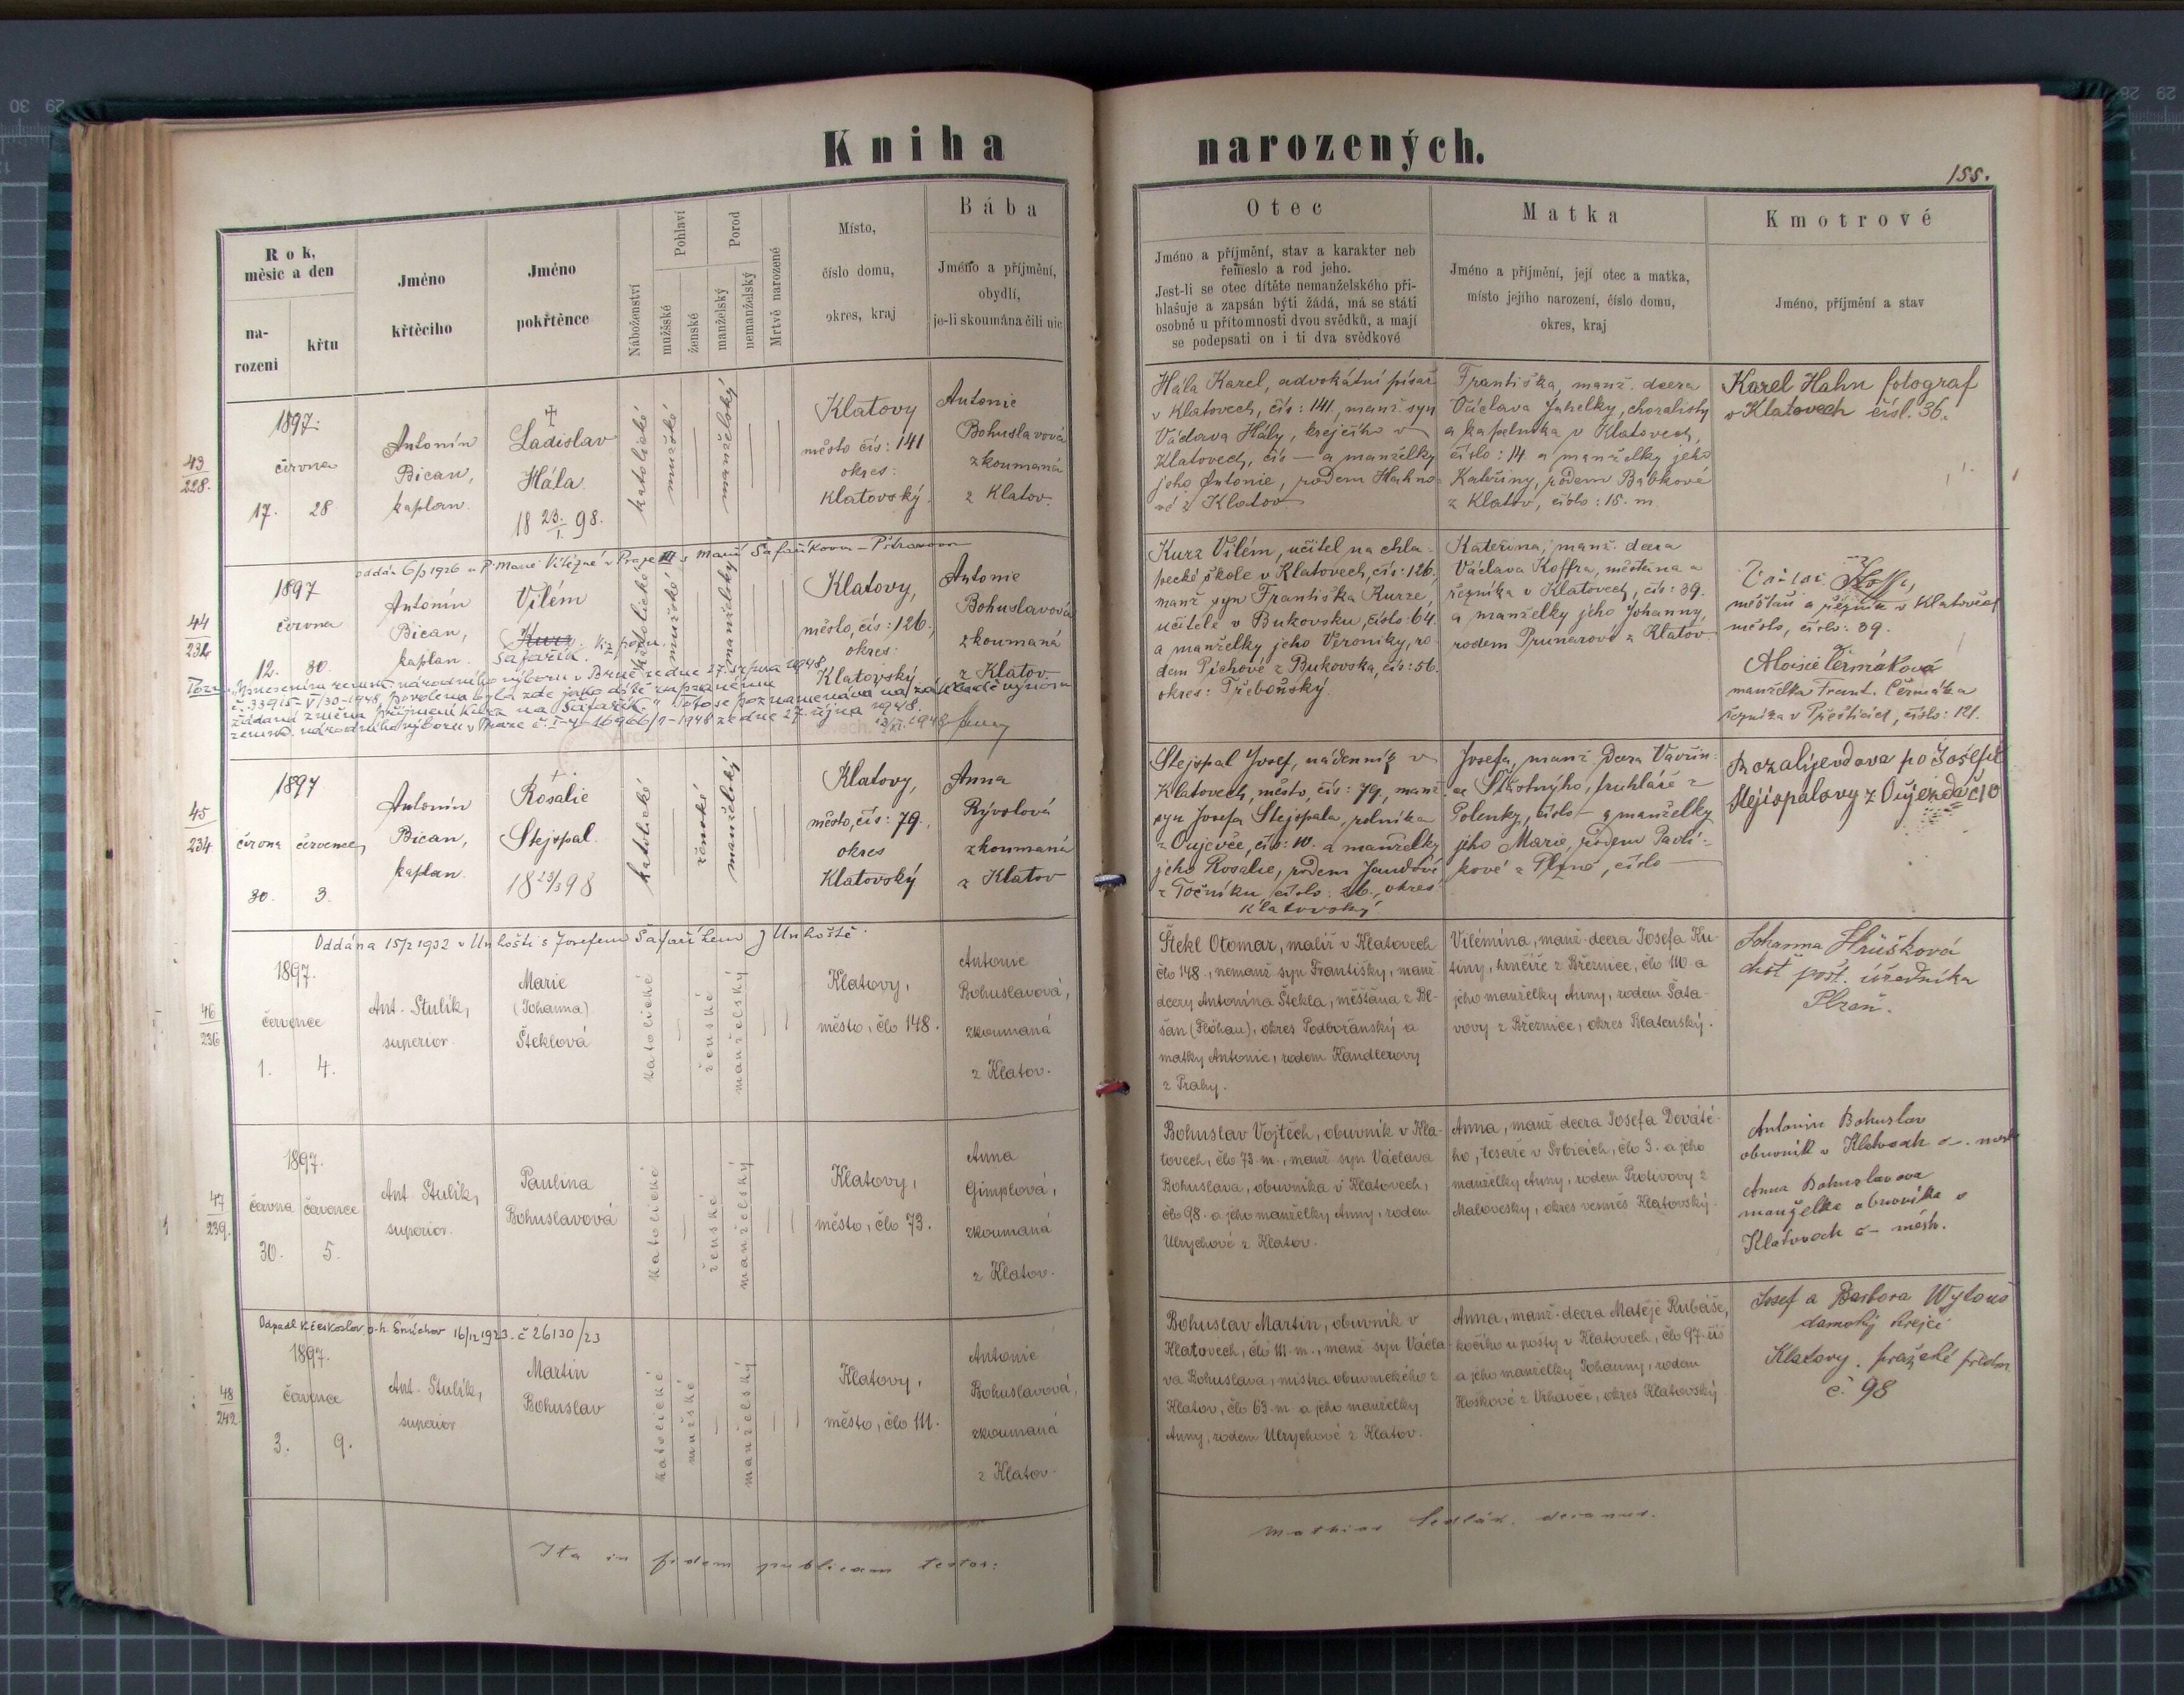 Kniha
narozených.
155.
Rok,
měsíc a den
na-
rozeni
křtu
Jméno
křtěcího
Jméno
pokřtěnce
Náboženství
Pohlaví
mužšské
ženské
Porod
manželský
nemanželský
Mrtvě narozené
Místo,
číslo domu,
okres, kraj
Bába
Jméno a příjmění,
obydlí,
je-li skoumána čili nic
Otec
Jméno a příjmění, stav a karakter neb
řemeslo a rod jeho.
Jest-li se otec dítěte nemanželského při-
hlašuje a zapsán býti žádá, má se státi
osobně u přítomnosti dvou svědků, a mají
se podepsati on i ti dva svědkové
Matka
Jméno a příjmění, její otec a matka,
místo jejího narození, číslo domu,
okres, kraj
Kmotrové
Jméno, příjmění a stav
43
228.
1897.
června
17. 28
Antonín
Bican,
kaplan.
Ladislav
Hála.
18 23./I. 98.
katolické
mužské
manželský
Klatovy
město čís: 141
okres:
Klatovský.
Antonie
Bohuslavová
zkoumaná
z Klatov.
Hála Karel, advokátní písař
v Klatovech, čís: 141, manž. syn
Václava Hály, krejčího v
Klatovech, čís — a manželky
jeho Antonie, rodem Hahno-
vé z Klatov
Františka, manž. dcera
Václava Juhelky, choralisty
a kapelníka v Klatovech,
číslo: 14 a manželky jeho
Kateřiny, rodem Babkové
z Klatov, číslo: 15. m.
Karel Hahn fotograf
v Klatovech čísl. 36.
oddán 6/2 1926 u P. Marie Vítězné v Praze III s Marií Šafaříkovou
44
232
1897
června
12. 30.
Antonín
Bican,
kaplan.
Vilém
Kurz. viz pozn.
Šafařík.
katolické
mužské
manželský
Klatovy,
město, čís: 126.,
okres:
Klatovský
Antonie
Bohuslavová
zkoumaná
z Klatov.
Pozn. „Usnesením zemsk. národního výboru v Brně ze dne 27. srpna 1948
č. 33915-V/30-1948, povolena byla zde jako dítě zapsanému
žádaná změna příjmení Kurz na „Šafařík." Toto se poznamenává na základě výnosu
zemsk. národního výboru v Praze č. I-4-16966/1-1948 ze dne 27. října 1948.
Kurz Vilém, učitel na chla-
pecké škole v Klatovech, čís: 126.
manž syn Františka Kurze,
učitele v Bukovsku, číslo: 64.
a manželky jeho Veroniky, ro-
dem Píchové z Bukovska, čís: 56.
okres: Třeboňský
Kateřina, manž. dcera
Václava Koffra, měšťana a
řezníka v Klatovech, čís: 39.
a manželky jeho Johanny,
rodem Prunerové z Klatov.
měšťan a řezník v Klatovech
město, číslo: 39.
Aloisie Čermáková
manželka Frant. Čermáka
řezníka v Přešticích, číslo: 121.
45
234
1897
června července
30. 3.
Antonín
Bican,
kaplan.
Rosalie
Stejspal.
18 23/3 98
katolické
ženské
manželský
Klatovy,
město, čís: 79.
okres
Klatovský
Anna
Rývolová
zkoumaná
z Klatov
Stejspal Josef, nádenník v
Klatovech, město, čís: 79., manž.
syn Josefa Stejspala, rolníka
z Oujezče, čís: 10. a manželky
jeho Rosalie, rodem Jandové
z Točníku, číslo 26., okres:
Klatovský
Josefa, manž. dcera Vavřin-
ce Šťastnýho, truhláře z
Polenky, číslo — a manželky
jeho Marie, rodem Pavlí-
kové z Plzně, číslo —
Rozalije vdova po Josefu
Stejspalovy z Oujezda č 10
Oddána 15/2 1932 v Unhošti s Josefem Šafaříkem z Unhoště.
46
236
1897.
července
1. 4.
Ant. Stulík,
superior.
Marie
(Johanna)
Šteklová
katolické
ženské
manželský
Klatovy,
město, člo 148.
Antonie
Bohuslavová,
zkoumaná
z Klatov.
Štekl Otomar, malíř v Klatovech
člo 148., nemanž syn Františky, manž
dcery Antonína Štekla, měšťana z Bl-
šan (Flöhau), okres Podbořanský a
matky Antonie, rodem Kandlerovy
z Prahy.
Vilémína, manž. dcera Josefa Ku-
tiny, hrnčíře z Březnice, člo 110. a
jeho manželky Anny, rodem Šata-
vovy z Březnice, okres Blatenský.
Johanna Hrušková
choť pošt. úředníka
Plzeň.
47
239.
1897.
června července
30. 5.
Ant. Stulík,
superior.
Paulina
Bohuslavová
katolické
ženské
manželský
Klatovy,
město, člo 73.
Anna
Gimplová,
zkoumaná
z Klatov.
Bohuslav Vojtěch, obuvník v Kla-
tovech, člo 73. m., manž syn Václava
Bohuslava, obuvníka v Klatovech,
člo 98. a jeho manželky Anny, rodem
Ulrychové z Klatov.
Anna, manž dcera Josefa Deváté-
ho, tesaře v Srbicích, člo 3. a jeho
manželky Anny, rodem Protivovy z
Malovesky, okres vesměs Klatovský.
Antonín Bohuslav
obuvník v Klatovech
Anna Bohuslavova
manželka obuvníka v
Klatovech
48
242
Odpadl k českoslov. o.h. Smíchov 16/12 1923. č 26130/23
1897.
července
3. 9.
Ant. Stulík,
superior
Martin
Bohuslav
katolické
mužské
manželský
Klatovy,
město, člo 111.
Antonie
Bohuslavová,
zkoumaná
z Klatov.
Bohuslav Martin, obuvník v
Klatovech, člo 111. m., manž syn Václa-
va Bohuslava, mistra obuvnického z
Klatov, člo 63. m a jeho manželky
Anny, rodem Ulrychové z Klatov.
Anna, manž. dcera Matěje Rubáše,
kočího u pošty v Klatovech, člo 97.
a jeho manželky Johanny, rodem
Hoškové z Vrhavče, okres Klatovský.
Josef a Barbora
damský krejčí
Klatovy. pražské předm.
č. 98
Ita in fidem publicam testor:
Mathias Sedlák, decanus.